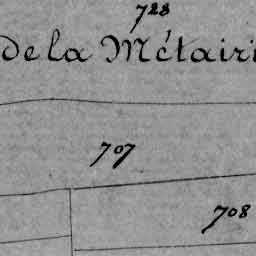 728
de la Métairi
707
708